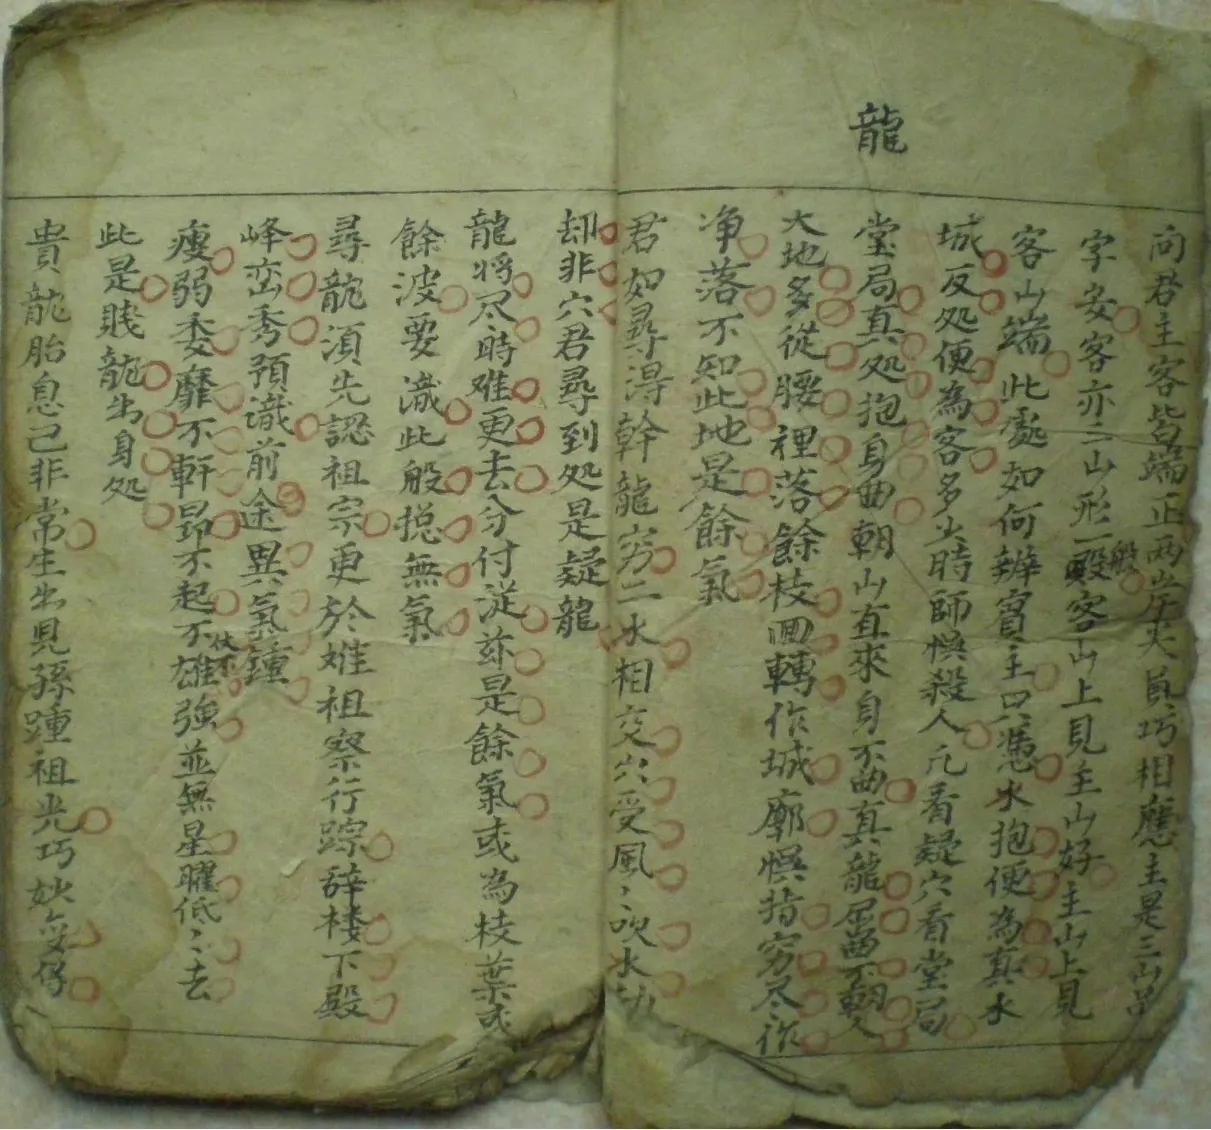 龍
向君主客皆端正两岸尖員巧相應主是三山品
字安客亦三山形一般客山上見主山好主山上見
客山端此處如何辨賓主只憑水抱便為真水
城反処便為客多少時師悞殺人凢看疑穴看堂局
堂局真処抱身曲朝山直來身不曲真龍屈曲不朝人
大地多從腰裡落餘枝囬轉作城廓悞指穷尽作
净落不知此地是餘氣
君如尋淂幹龍穷二水相交穴受風〻吹水劫
却非穴君尋到処是疑龍
龍將尽時难更去分付逆茲是餘氣或為枝葉或
餘波要識此般捴無氣
尋龍湏先認祖宗更於雄祖察行踪辞楼下殿
峰峦秀預識前途異氣鍾
瘦弱委靡不軒昂不起不伏不雄強並無星曜低〻去
此是賎龍出身処
貴龍胎息已非常生出児孫踵祖光巧妙